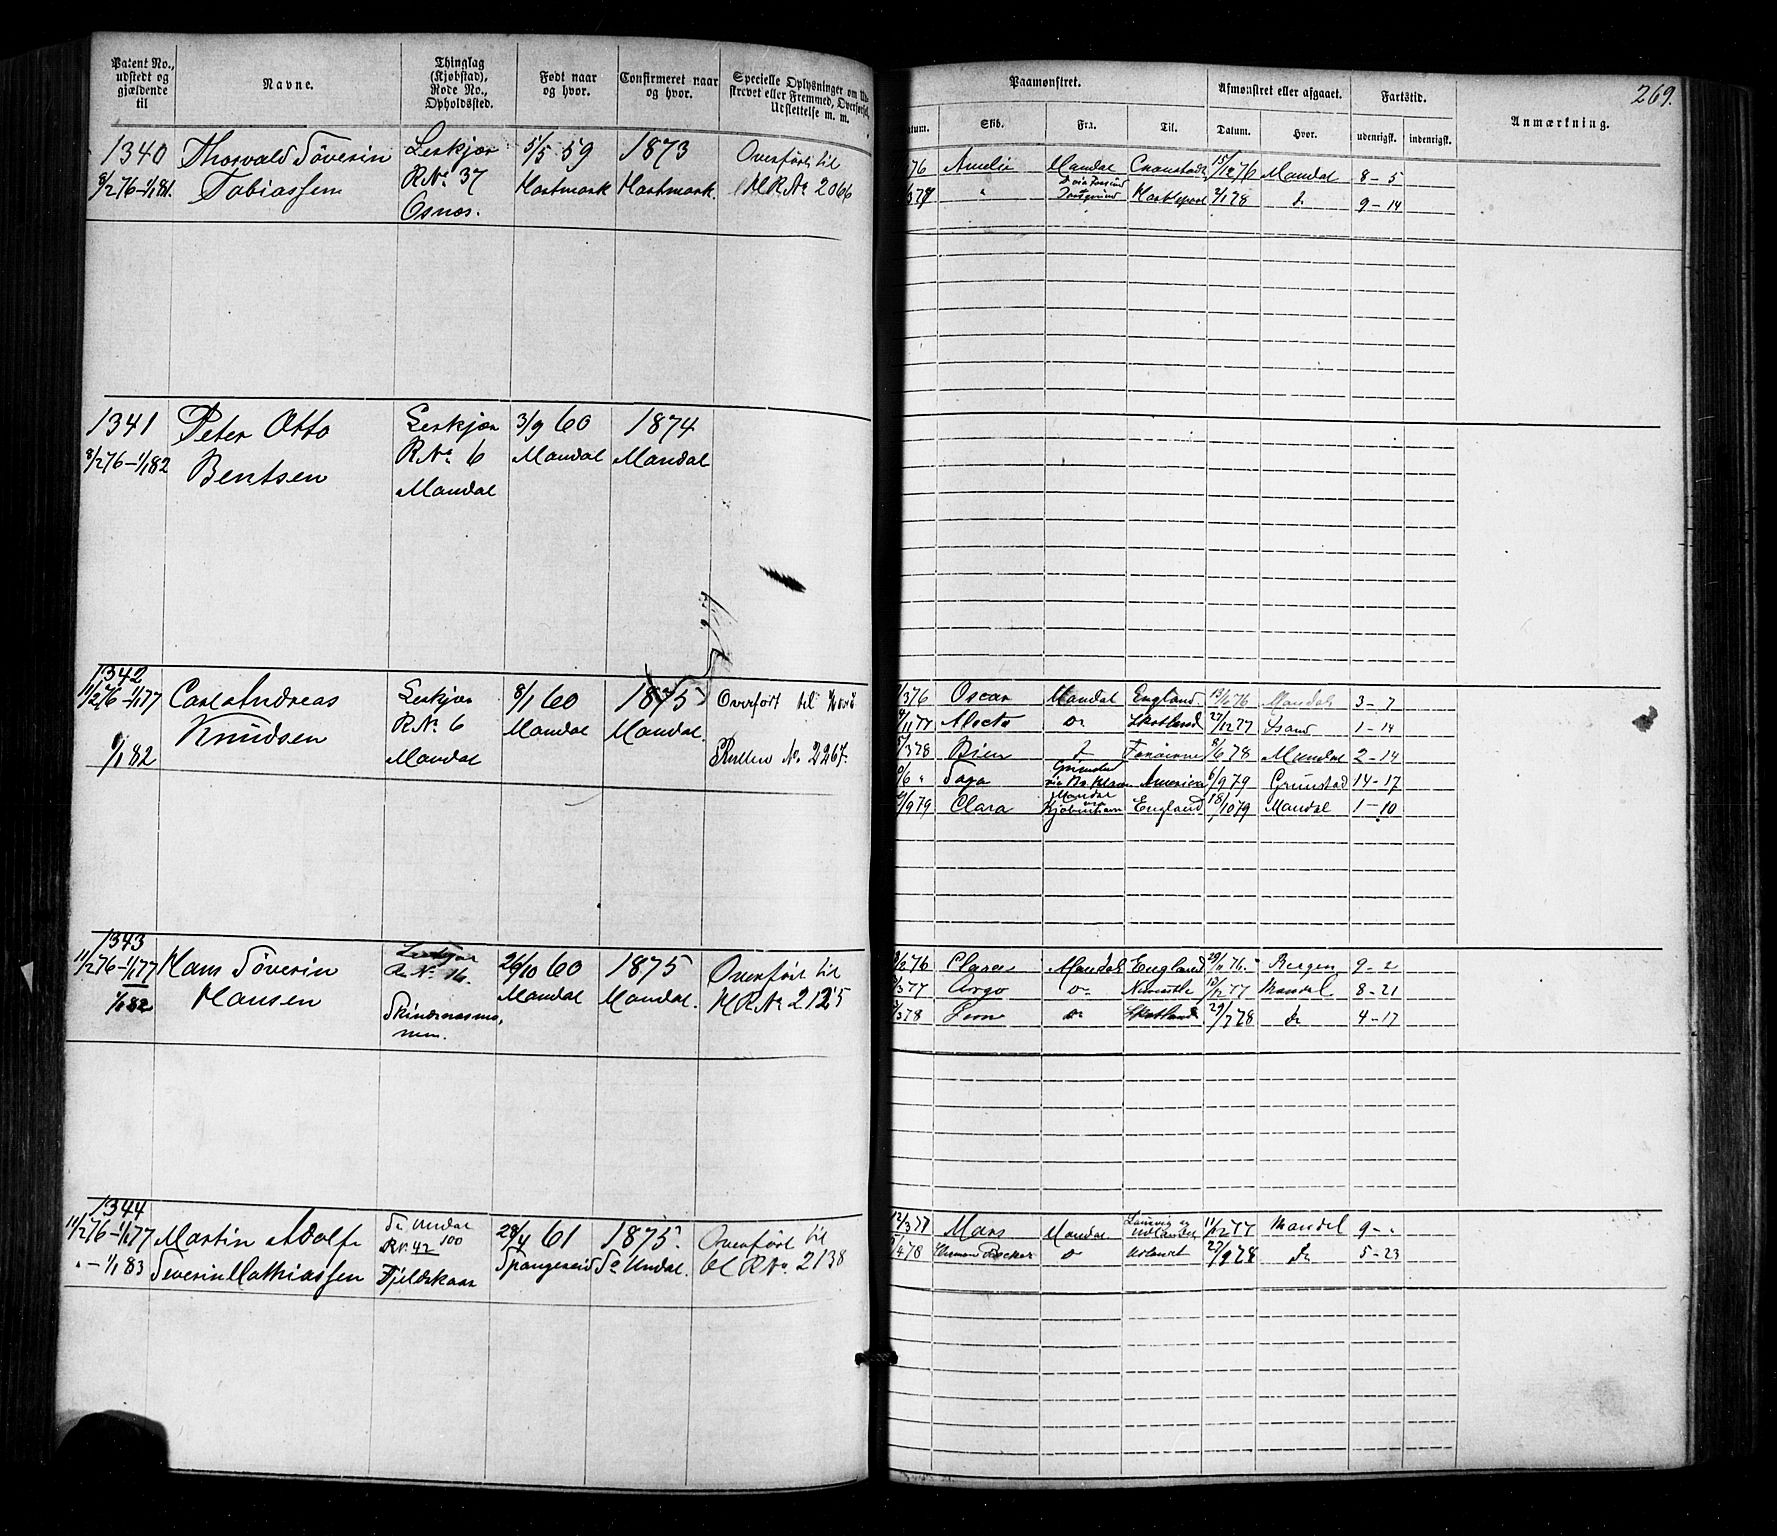 269.
Patent No., udstedt og gjældende til
Navne.
Thinglag (Kjøbstad), Rode No., Opholdssted.
Født naar og hvor.
Confirmeret naar og hvor.
Specielle Oplysninger om
strevet eller Fremmed, Overførsel,
Udslettelse m. m.
Paamønstret.
Afmønstret eller afgaaet.
Fartstid.
Anmærkning.
Skib.
Fra.
Til.
Datum.
Hvor.
udenrigsk.
indenrigsk.
1340 Thorvald Söverin Leskjær 5/5 59 1873 Overført til
8/2 76–1/1 81. Tobiassen R No 37 Hartmark Hartmark. HR No 2066
Osnes.
76 Amelie Mandal Cronstadt 15/12 76 Mandal 8 – 5
" 2/1 78 do 9 – 14
1341 Peter Otto Leskjær 3/9 60 1874
8/2 76–1/1 82 Bentsen R No 6 Mandal Mandal
Mandal
1342
11/2 76–1/1 77 Carl Andreas Leskjær 8/1 60 1875 Overført til Hoved
Knudsen R No 6 Mandal Mandal. Rullen No 2267.
1/1 82 Mandal
/3 76 Oscar Mandal England 13/6 76 Mandal 3 – 7
/11 77 Alecto do Skotland 27/12 77 1 – 14
/3 78 do 8/6 78 Mandal 2 – 14
/6 " Saga Grimstad America 6/9 79 Grimstad 14 – 17
/9 79 Clara Mandal via England 18/10 79 Mandal 1 – 10
1343
11/2 76–1/1 77 Hans Söverin Leskjær 26/10 60 1875 Overført til
1/1 82 Hansen R No 16. Mandal Mandal. HR No 2125
/6 76 Clara Mandal England 29/11 76. Bergen 9 – 2
/3 77 Argo do 77 Mandal 8 – 21
/3 78 do Skotland 29/7 78 do 4 – 17
1344
11/2 76–1/1 77 Martin Adolf Sö Undal 28/4 61 1875. Overført til
" – 1/1 83 Severin Mathiassen R No 42 100 Spangereid Sö Undal. HR No 2138
Fjeldskaar
12/3 77 Mars Mandal 11/12 77 Mandal 9 – "
/4 78 Herman Becker do 27/9 78 do 5 – 23